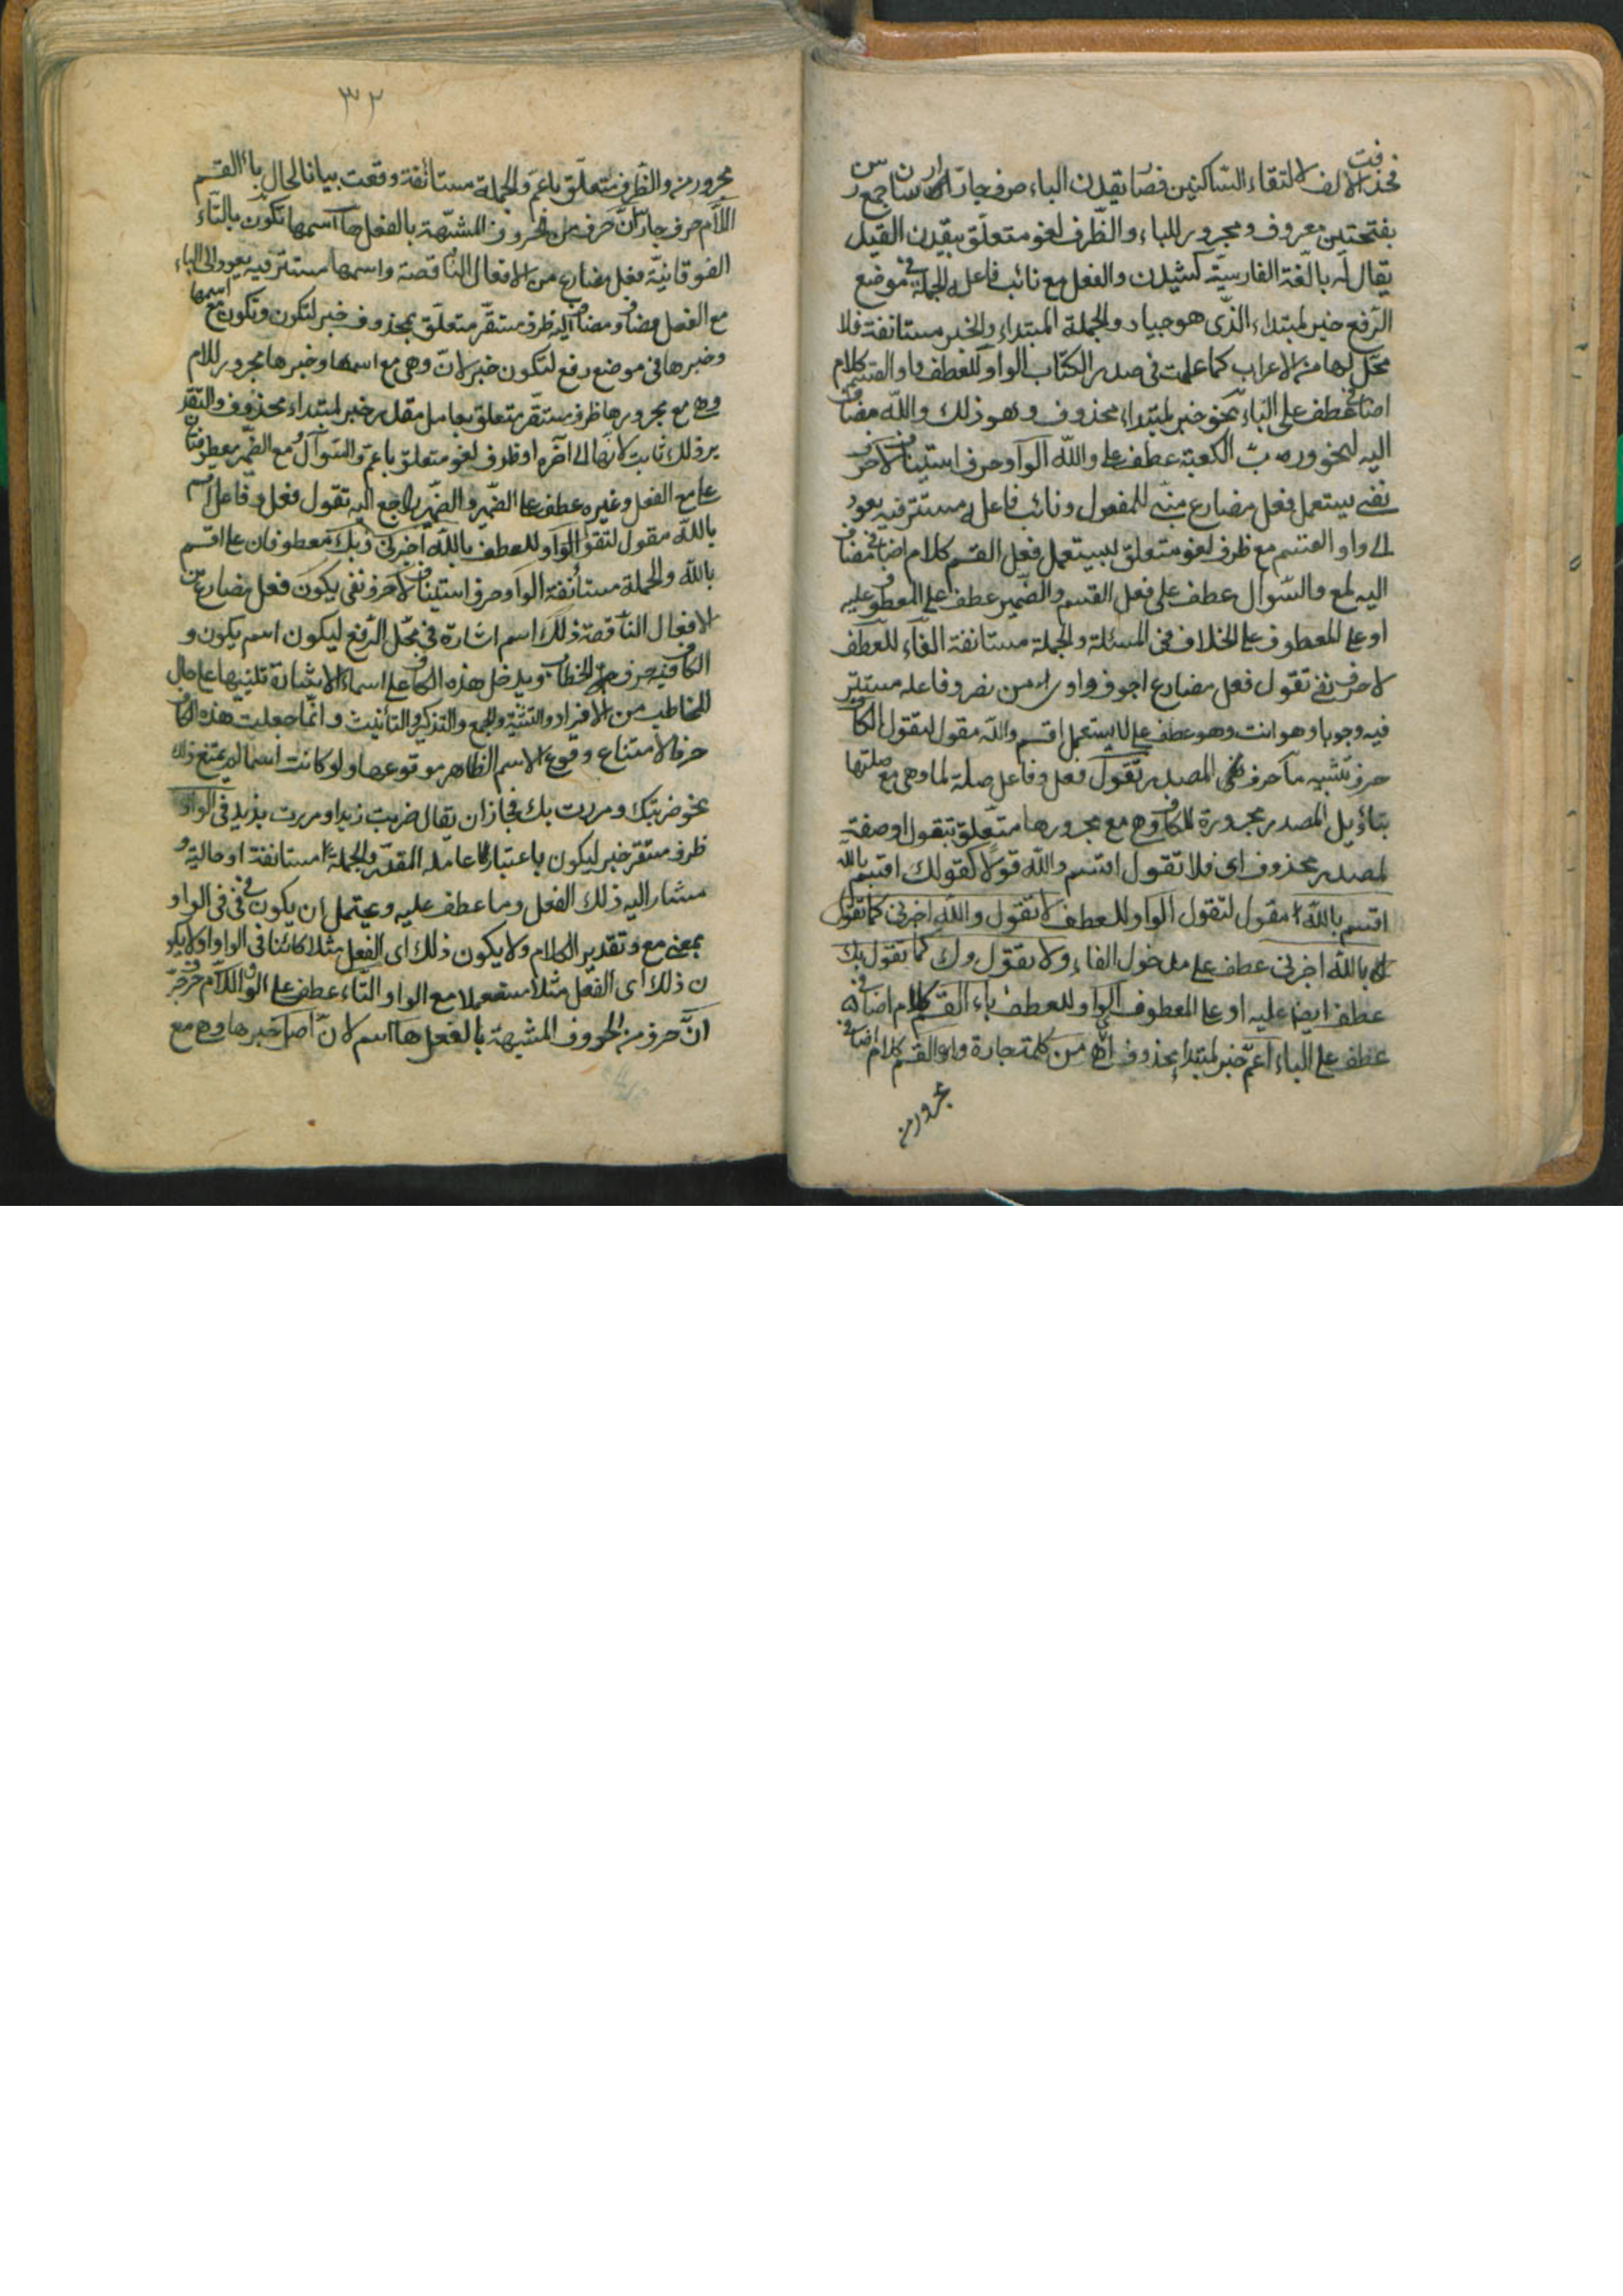 فحذفت الالف لالتقاء الساكنين فصا يقدن الباء حرف جار
بفتحتين معروف ومجرور للباء والظّرف لغو متعلّق بيقدن القيل
يقال له باللّغة الفارسيّة كشيدن والفعل مع نائب فاعله الجملة فى موضع
الرّفع خبر لمبتداء الّذى هو جياد والجملة المبتداء والخبر مستانفة فلا
محّل لها من الاعراب كما علمت فى صدر الكتاب الواو للعطف واو القسم كلام
اضافى عطف على الباء نحو خبر لمبتداء محذوف وهو ذلك والله مضاف
اليه لنحو وربّ الكعبة عطف على والله الواو حرف استيناف لا حرف
نفى يستعمل فعل مضارع مبنى للمفعول ونائب فاعله مستتر فيه يعود
الى واو القسم مع ظرف لغو متعلّق ليستعمل فعل القسم كلام اضافى مضاف
اليه لمع والسّوال عطف على فعل القسم والضمير عطف على المعطوف عليه
او على المعطوف على الخلاف فى المسئلة والجملة مستانفة الفاء للعطف
لا حرف نفى تقول فعل مضارع اجوف واوى من نصر وفاعله مستتر
فيه وجوبا وهو انت وهو عطف على لا يستعمل اقسم والله مقول لتقول الكاف
حرف تشبيه ما حرف المصدر تقول فعل وفاعل صلة لما وهى مع صلتها
بتاويل المصدر مجرورة للكاف وهى مع مجرورها متعلّق بتقول او صفة
لمصدر محذوف اى فلا تقول اقسم والله قولا كقولك اقسم بالله
اقسم بالله مقول لتقول الواو للعطف لا تقول والله اخبرنى كما تقول
بالله اخبرنى عطف على مدخول الفاء ولا تقول وك كما تقول بك
عطف ايضا عليه او على المعطوف الواو للعطف باء القسم كلام اضافى
عطف على الباء اعمّ خبر لمبتداء محذوف اى هى من كلمة جارة واو القسم كلام اضافى
مجرور من
٣٢
مجرور من والظّرف متعلّق باعمّ والجملة مستأنفة وقعت بيانا لحال باء القسم
اللّام حرف جار انّ حرف من الحروف المشبّهة بالفعل ها اسمها تكون بالتّاء
الفوقانيّة فعل مضارع من الافعال النّاقصة واسمها مستتر فيه يعود الى الباء
مع الفعل مضاف ومضاف اليه ظرف مستقّر متعلّق بمحذوف خبر لتكون وتكون مع اسمها
وخبرها فى موضع رفع لتكون خبر لانّ وهى مع اسمها وخبرها مجرور للام
وهى مع مجرورها ظرف مستقّر متعلّق بعامل مقدّر خبر لمبتداء محذوف والتّقد
ير ذلك ثابت لانّها الى آخره او ظرف لغو متعلّق باعمّ والسّوآل مع الضّمير معطوفتان
على مع الفعل وغيره عطف على الضّمير والضّمير راجع اليه تقول فعل وفاعل اقسم
بالله مقول لتقول الواو للعطف بالله اخبرنى وبك معطوفان على اقسم
بالله والجملة مستأنفة الواو حرف استيناف لا حرف نفى يكون فعل مضارع من
الافعال النّاقصة ذلك اسم اشارة فى محّل الرّفع ليكون اسم يكون و
الكاف فيه حرف الخطاب ويدخل هذه الكاف على اسماء الاشارة تنبيها على حال
المخاطب من الافراد والتثنية والجمع والتذكير والتأنيث وانّما جعلت هذه الكاف
حرفا لامتناع وقوع الاسم الظاهر موقوعها ولو كانت اسما لم يمتنع ذلك
نحو ضربتك ومررت بك فجاز ان يقال ضربت زيدا ومررت بزيد فى الواو
ظرف مستقّر خبر ليكون باعتبار عامله المقدّر والجملة مستانفة او حالية و
مشار اليه ذلك الفعل وما عطف عليه ويحتمل ان يكون فى فى الواو
بمعنى مع وتقدير الكلام ولا يكون ذلك اى الفعل مثلا كائنا فى الواو او لا يكو
ن ذلك اى الفعل مثلا مستعملا مع الواو التّاء عطف على الواو اللّام حرف جّر
انّ حرف من الحروف المشبهة بالفعل ها اسم لانّ اصل خبرها وهى مع